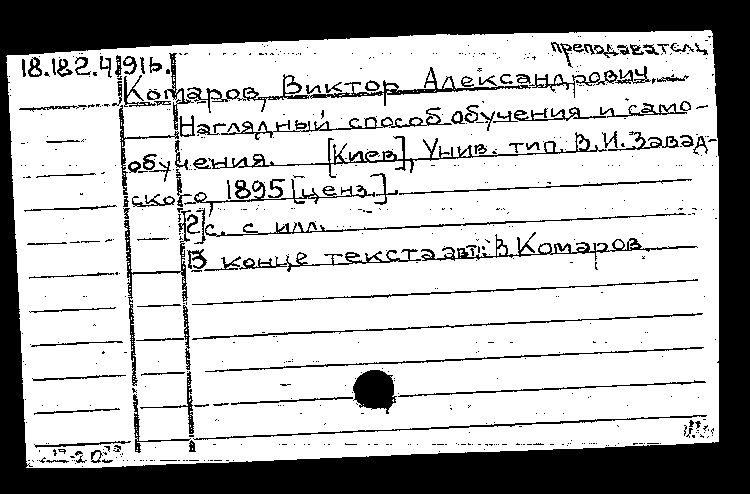 преподаватель
18.182.4.91б.
Комаров, Виктор Александрович.
Наглядный способ обучения и само-
обучения. [Киев], Унив. тип. В.И. Завад-
ского, 1895 [ценз.].
[2] с. с илл.
В конце текста авт.: В. Комаров.